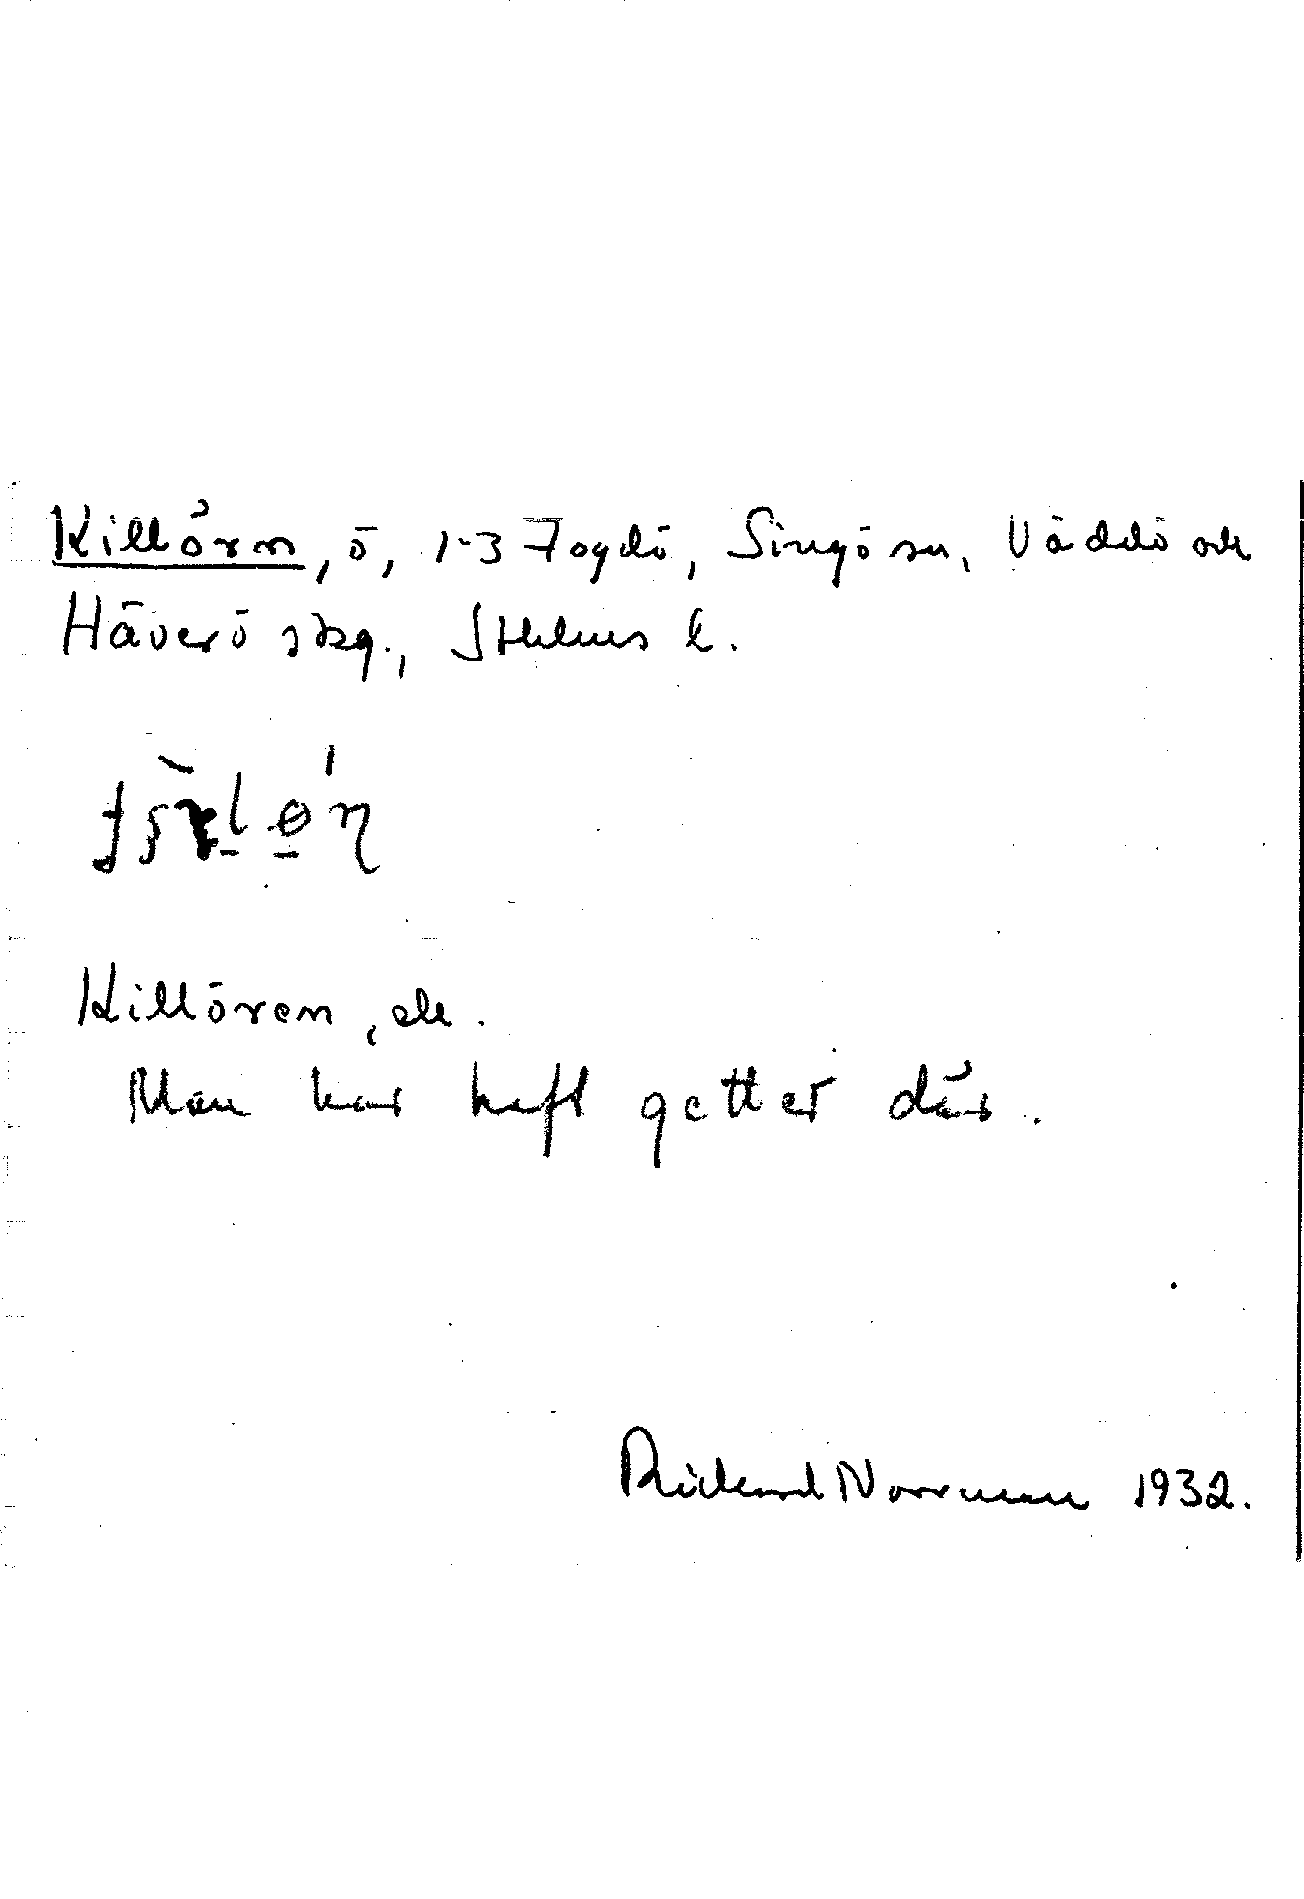 Killörn, ö, 1-3 Fogdö, Singö sn, Väddö och
Häverö skg., Sthlms l.
Killören, ek.
Man har haft getter där.
Rickard Norrman 1932.